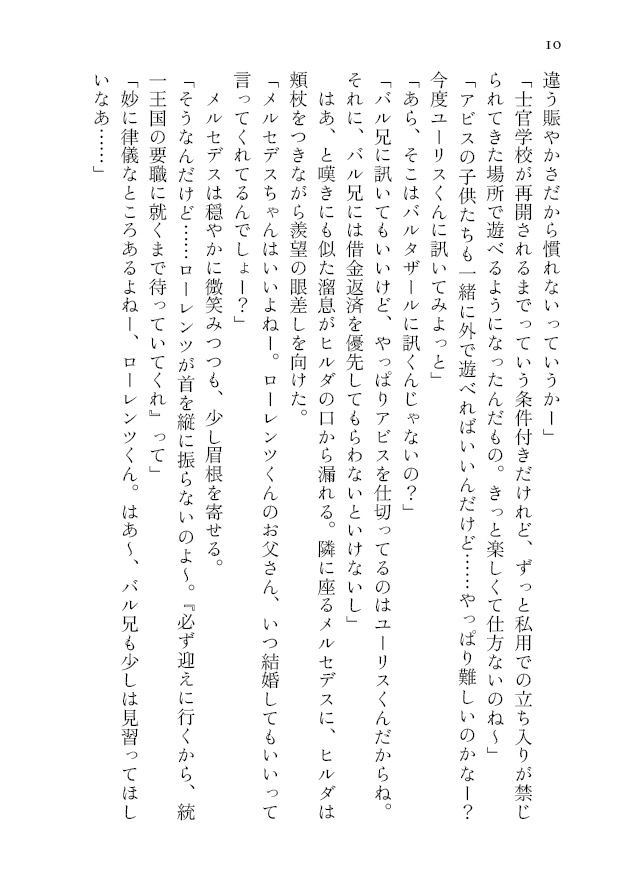 10
違う賑やかさだから慣れないっていうかー」
「士官学校が再開されるまでっていう条件付きだけれど、ずっと私用での立ち入りが禁じ
られてきた場所で遊べるようになったんだもの。きっと楽しくて仕方ないのね～」
「アビスの子供たちも一緒に外で遊べればいいんだけど……やっぱり難しいのかなー？
今度ユーリスくんに訊いてみよっと」
「あら、そこはバルタザールに訊くんじゃないの？」
「バル兄に訊いてもいいけど、やっぱりアビスを仕切ってるのはユーリスくんだからね。
それに、バル兄には借金返済を優先してもらわないといけないし」
はあ、と嘆きにも似た溜息がヒルダの口から漏れる。隣に座るメルセデスに、ヒルダは
頬杖をつきながら羨望の眼差しを向けた。
「メルセデスちゃんはいいよねー。ローレンツくんのお父さん、いつ結婚してもいいって
言ってくれてるんでしょー？」
メルセデスは穏やかに微笑みつつも、少し眉根を寄せる。
「そうなんだけど……ローレンツが首を縦に振らないのよ～。『必ず迎えに行くから、統
一王国の要職に就くまで待っていてくれ』って」
「妙に律儀なところあるよねー、ローレンツくん。はあ～、バル兄も少しは見習ってほし
いなあ……」